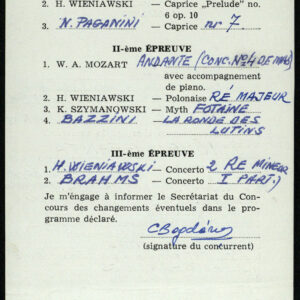 2. H. WIENIAWSKI — Caprice „Prelude" no. 6 op. 10
3. N. PAGANINI — Caprice nr 7.
II-ème ÉPREUVE
1. W. A. MOZART ANDANTE (CONC. No 4 DE MAJ)
avec accompagnement
de piano.
2. H. WIENIAWSKI — Polonaise RÉ MAJEUR
3. K. SZYMANOWSKI — Myth FOTAINE
4. BAZZINI LA RONDE DES
LUTINS
III-ème ÉPREUVE
1. H. WIENIAWSKI — Concerto 2 RE MINEUR
2. BRAHMS — Concerto I PART.)
Je m'engage à informer le Secrétariat du Con-
cours des changements éventuels dans le pro-
gramme déclaré.
(signature du concurrent)